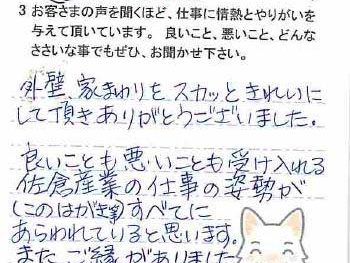 3 お客さまの声を聞くほど、仕事に情熱とやりがいを
与えて頂いています。 良いこと、悪いこと、どんな
ささいな事でもぜひ、お聞かせ下さい。
外壁、家まわりを スカッと きれいに
して頂きありがとうございました。
良いことも悪いことも受け入れる
佐倉産業の仕事の姿勢が
(このはがき等)すべてに
あらわれていると思います。
また ご縁がありました